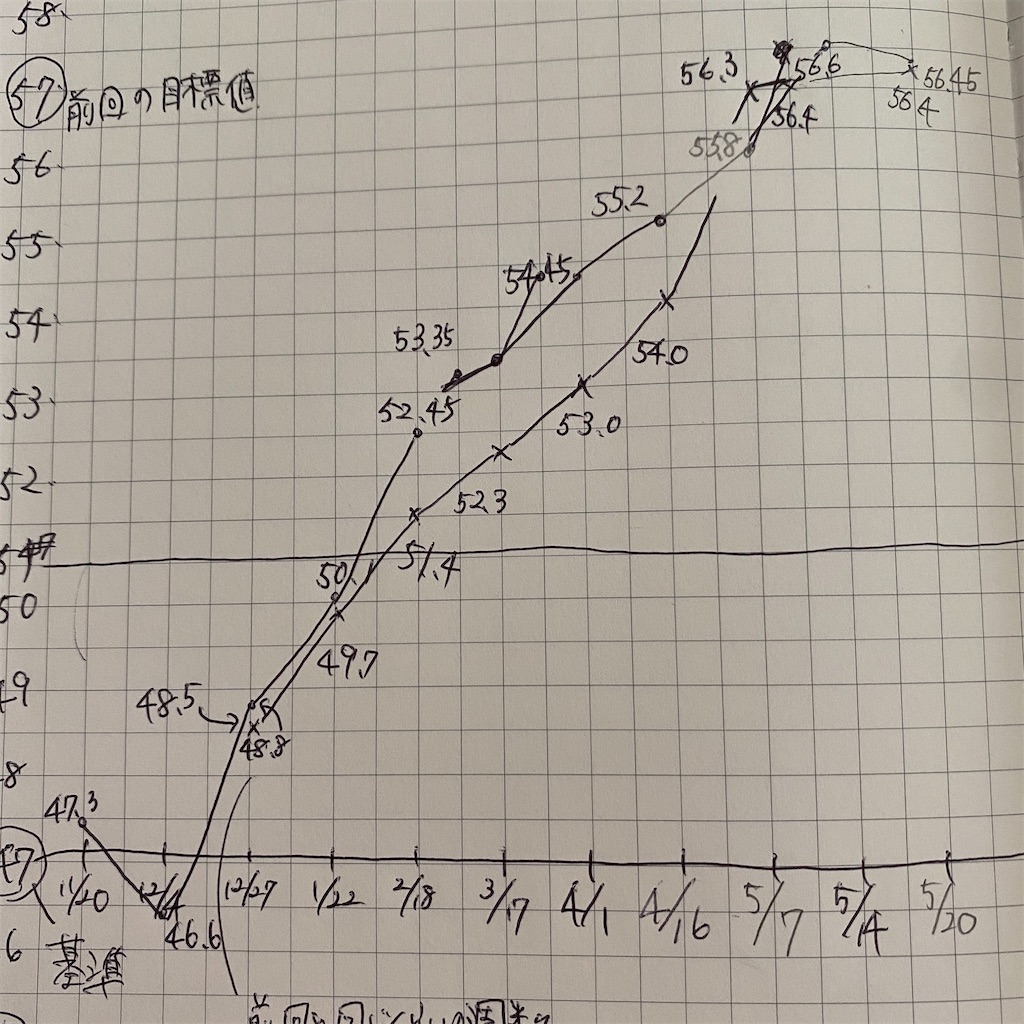 58
57 前回の目標値
56.3
56.6
56.45
56.4
56.4
56
55.8
55
55.2
54.45
54
53.35
54.0
53
52.45
53.0
52
52.3
51.4
50
50.1
49.7
49
48.5
48.8
8
47.3
47
11/20 12/4 12/27 1/22 2/18 3/17 4/1 4/16 5/7 5/14 5/20
46.6
6
基準